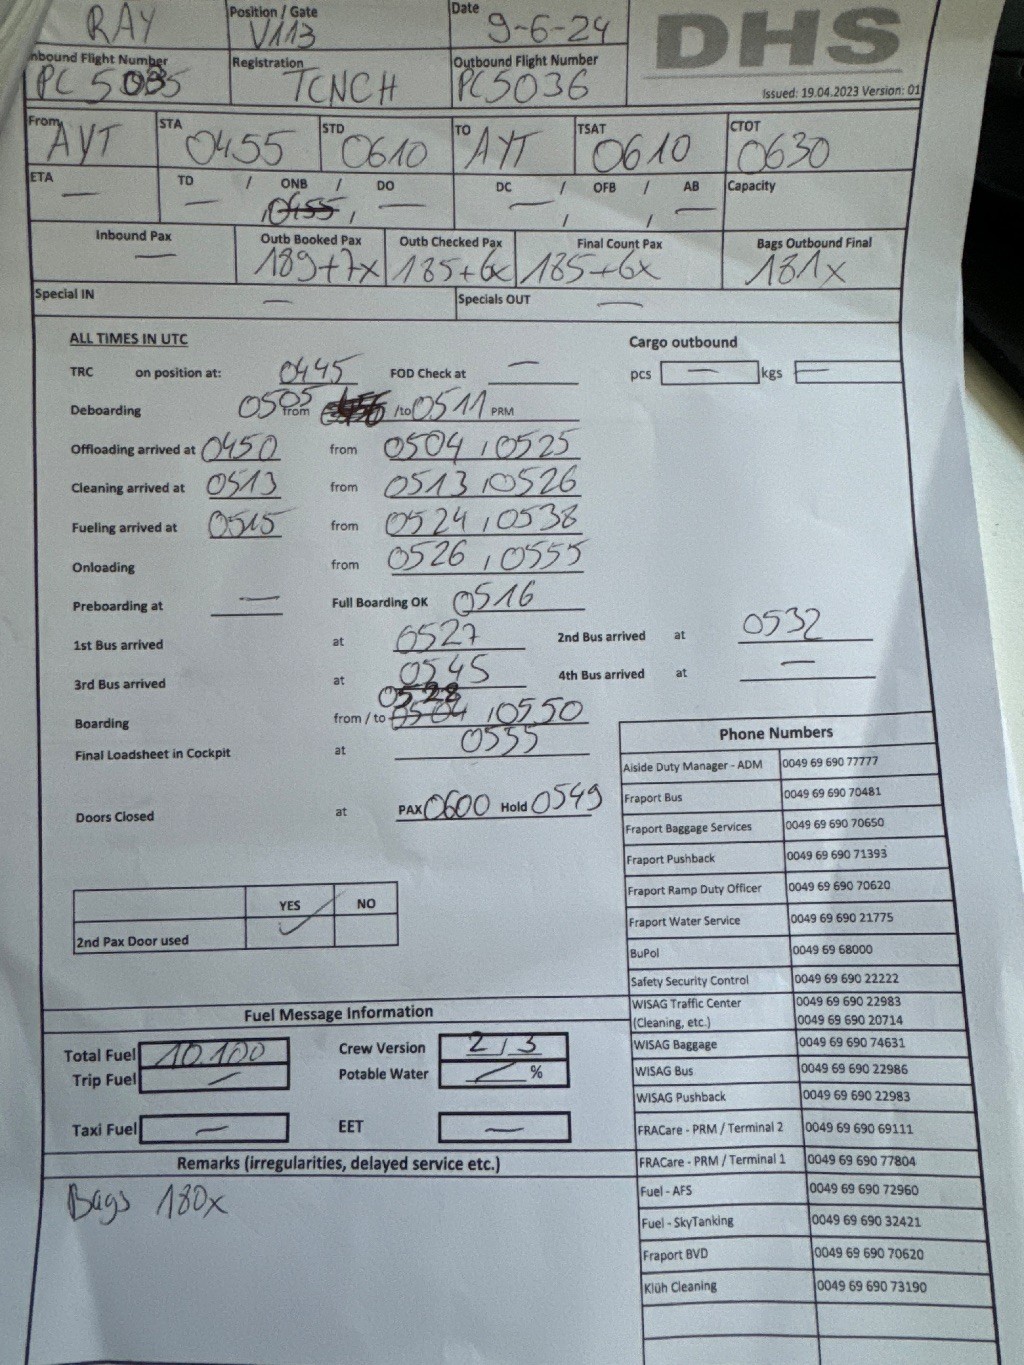 RAY Position / Gate V113 Date 9-6-24 DHS
Inbound Flight Number PC 5035 Registration TCNCH Outbound Flight Number PC5036
Issued: 19.04.2023 Version: 01
From AYT STA 0455 STD 0610 TO AYT TSAT 0610 CTOT 0630
ETA — TD — / ONB 0455 / DO — DC — / OFB / AB — Capacity
Inbound Pax — Outb Booked Pax 189+7x Outb Checked Pax 185+6x Final Count Pax 185+6x Bags Outbound Final 181x
Special IN — Specials OUT —
ALL TIMES IN UTC Cargo outbound
TRC on position at: 0445 FOD Check at — pcs — kgs —
Deboarding 0505 from /to 0511 PRM
Offloading arrived at 0450 from 0504 , 0525
Cleaning arrived at 0513 from 0513 , 0526
Fueling arrived at 0515 from 0524 , 0538
Onloading from 0526 , 0555
Preboarding at — Full Boarding OK 0516
1st Bus arrived at 0527 2nd Bus arrived at 0532
3rd Bus arrived at 0545 4th Bus arrived at —
Boarding from / to 0528 0504 , 0550
Final Loadsheet in Cockpit at 0555
Doors Closed at PAX 0600 Hold 0549
YES NO
2nd Pax Door used ✓
Phone Numbers
Aiside Duty Manager - ADM 0049 69 690 77777
Fraport Bus 0049 69 690 70481
Fraport Baggage Services 0049 69 690 70650
Fraport Pushback 0049 69 690 71393
Fraport Ramp Duty Officer 0049 69 690 70620
Fraport Water Service 0049 69 690 21775
BuPol 0049 69 68000
Safety Security Control 0049 69 690 22222
WISAG Traffic Center 0049 69 690 22983
(Cleaning, etc.) 0049 69 690 20714
WISAG Baggage 0049 69 690 74631
WISAG Bus 0049 69 690 22986
WISAG Pushback 0049 69 690 22983
FRACare - PRM / Terminal 2 0049 69 690 69111
FRACare - PRM / Terminal 1 0049 69 690 77804
Fuel - AFS 0049 69 690 72960
Fuel - SkyTanking 0049 69 690 32421
Fraport BVD 0049 69 690 70620
Klüh Cleaning 0049 69 690 73190
Fuel Message Information
Total Fuel 10.100 Crew Version 2 / 3
Trip Fuel — Potable Water — %
Taxi Fuel — EET —
Remarks (irregularities, delayed service etc.)
Bags 180x